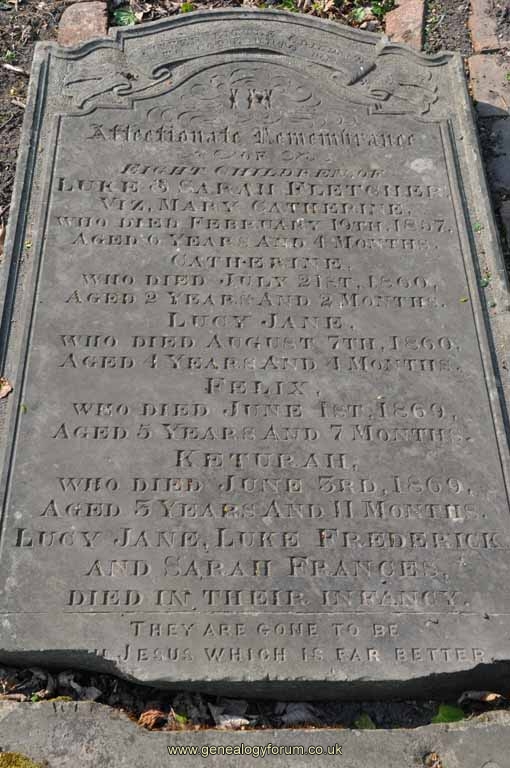 Affectionate Remembrance
OF
EIGHT CHILDREN OF
LUKE & SARAH FLETCHER
VIZ, MARY CATHERINE,
WHO DIED FEBRUARY 19TH, 1857,
AGED 6 YEARS AND 4 MONTHS.
CATHERINE,
WHO DIED JULY 21ST, 1860,
AGED 2 YEARS AND 2 MONTHS.
LUCY JANE,
WHO DIED AUGUST 7TH, 1860,
AGED 4 YEARS AND 4 MONTHS.
FELIX,
WHO DIED JUNE 1ST, 1869,
AGED 5 YEARS AND 7 MONTHS.
KETURAH,
WHO DIED JUNE 3RD, 1869,
AGED 3 YEARS AND 11 MONTHS.
LUCY JANE, LUKE FREDERICK
AND SARAH FRANCES,
DIED IN THEIR INFANCY.
THEY ARE GONE TO BE
JESUS WHICH IS FAR BETTER
www.genealogyforum.co.uk